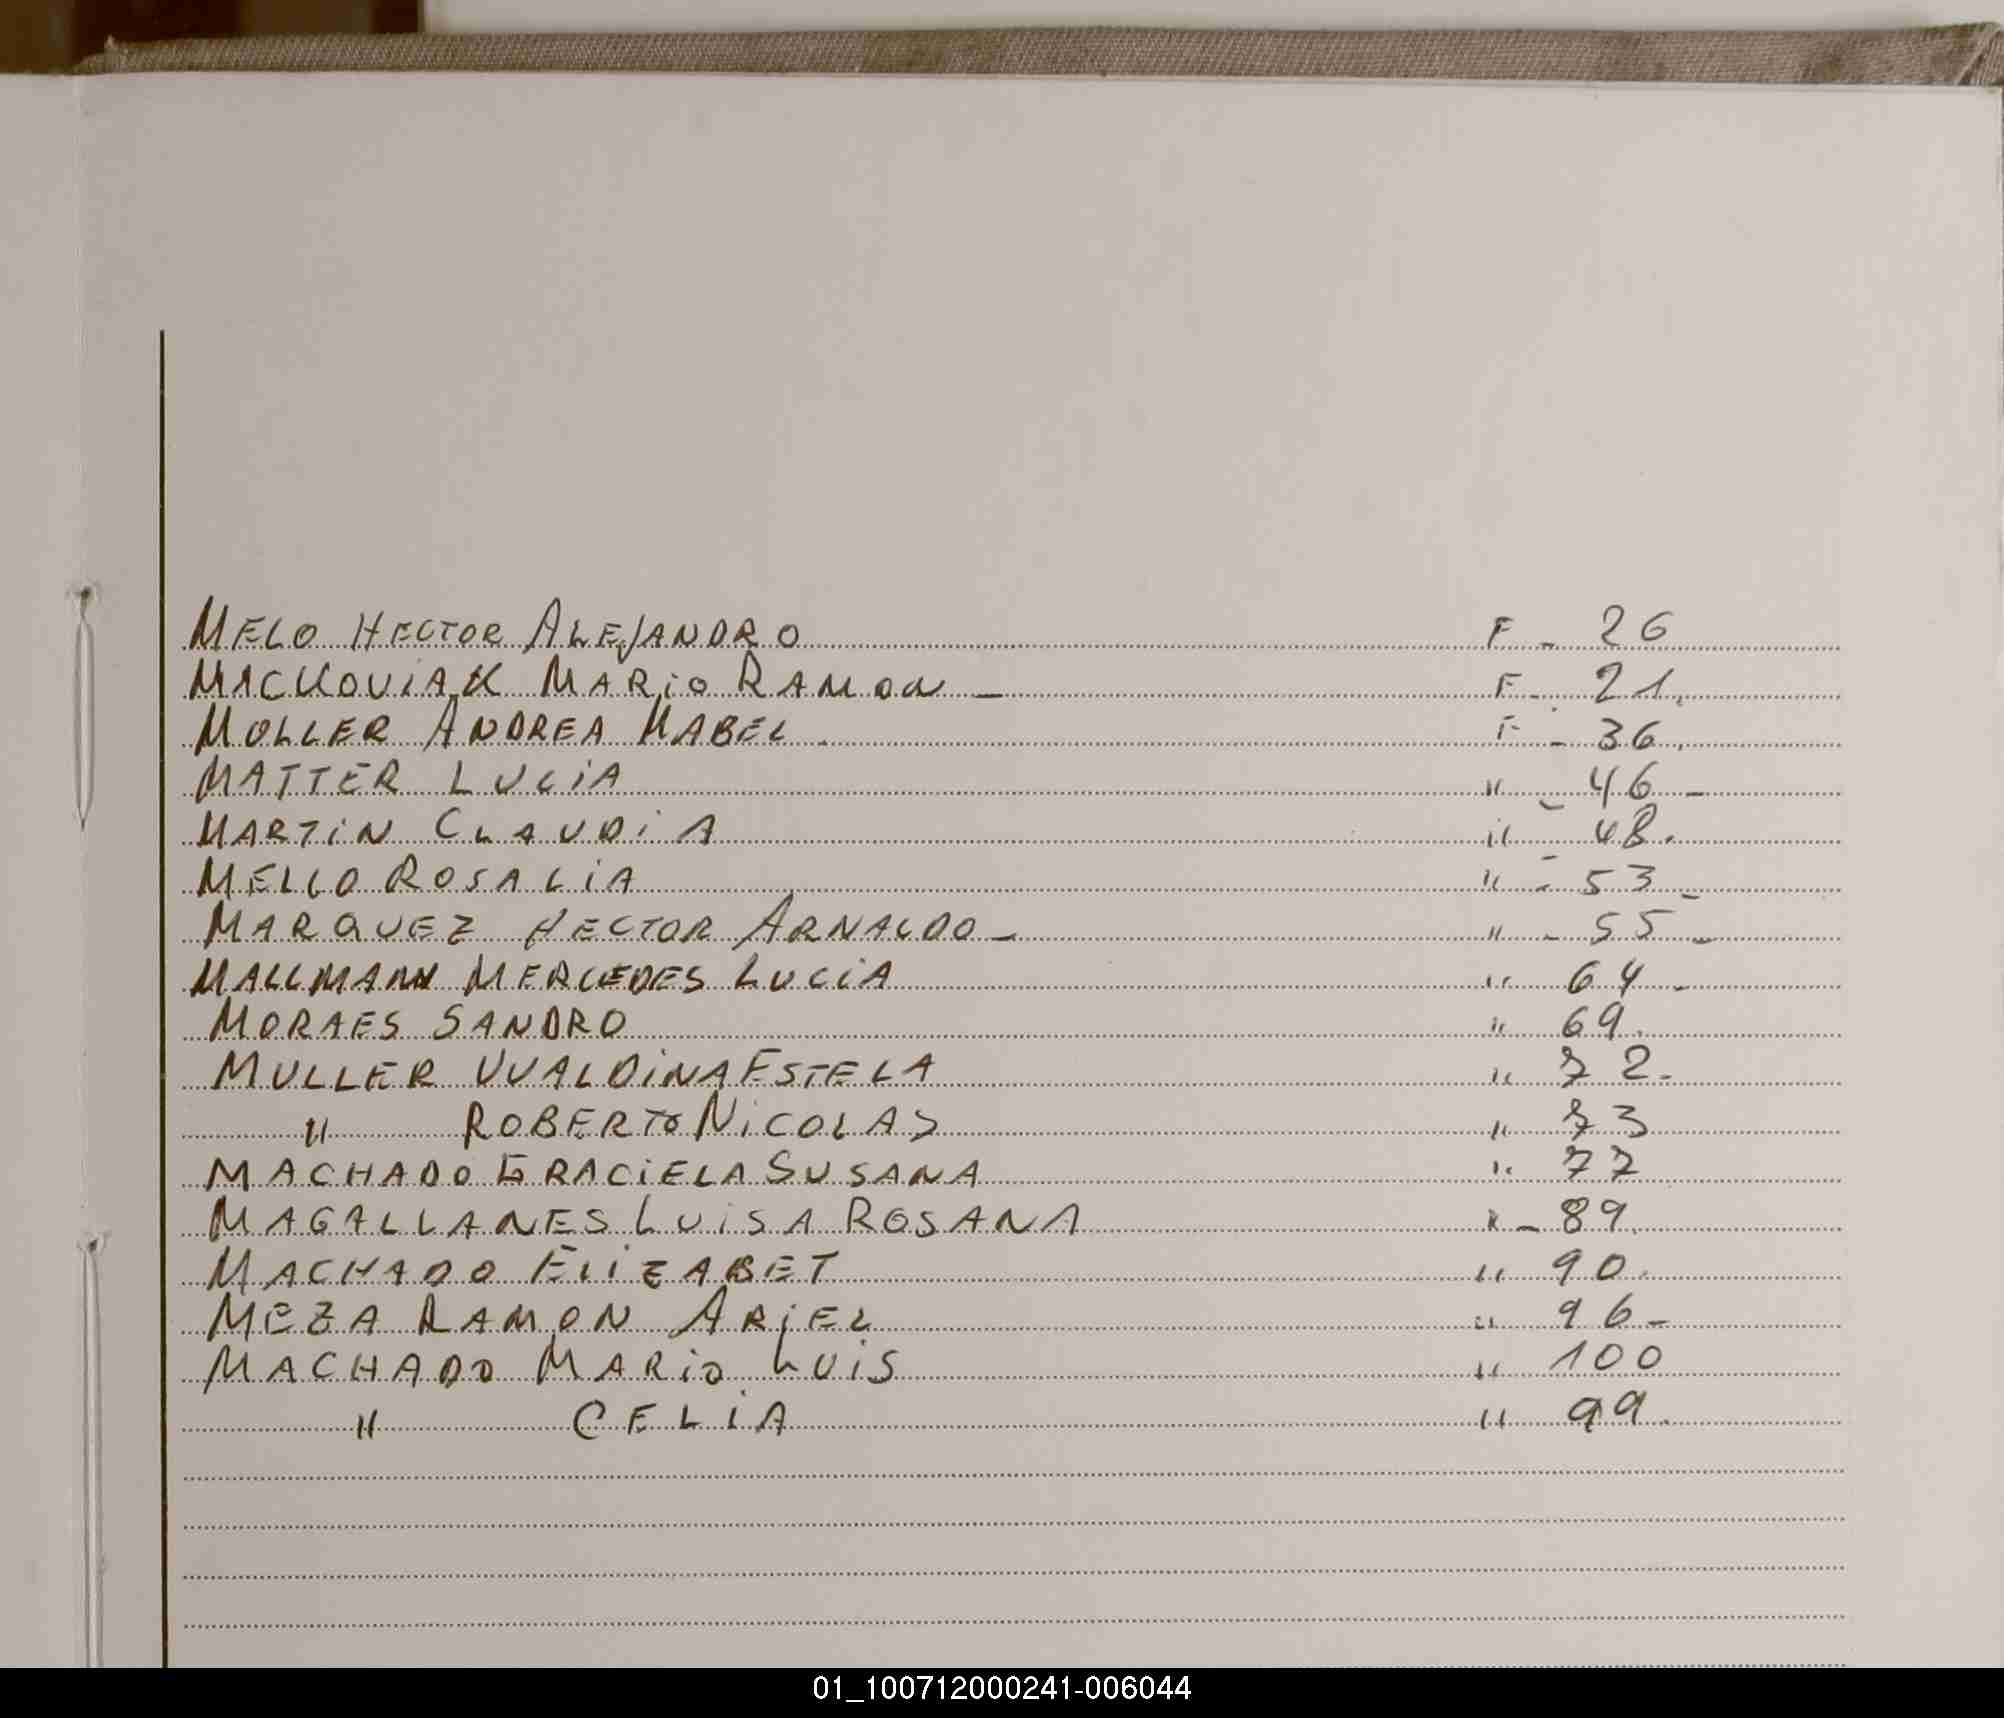 MELO HECTOR ALEJANDRO F - 26
MACKOVIAK MARIO RAMON - F - 21.
MOLLER ANDREA MABEL F - 36.
MATTER LUCIA " - 46 -
MARTIN CLAUDIA " - 48.
MELLO ROSALIA " - 53 -
MARQUEZ HECTOR ARNALDO - " - 55 -
MALLMANN MERCEDES LUCIA " 64 -
MORAES SANDRO " 69.
MULLER UVALDINA ESTELA " 72.
" ROBERTO NICOLAS " 73
MACHADO GRACIELA SUSANA " 77
MAGALLANES LUISA ROSANA " - 89.
MACHADO ELIZABET " 90.
MEZA RAMON ARIEL " 96 -
MACHADO MARIO LUIS " 100
" CELIA " 99.
01_100712000241-006044